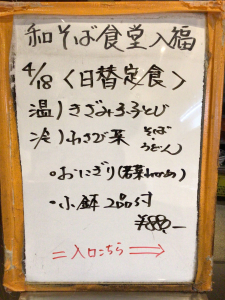 和そば食堂入福
4/18〈日替定食〉
温)きざみ
冷)わさび菜 そば・うどん
・おにぎり(若菜わかめ)
・小鉢2品付
¥880-
=入口こちら⇒